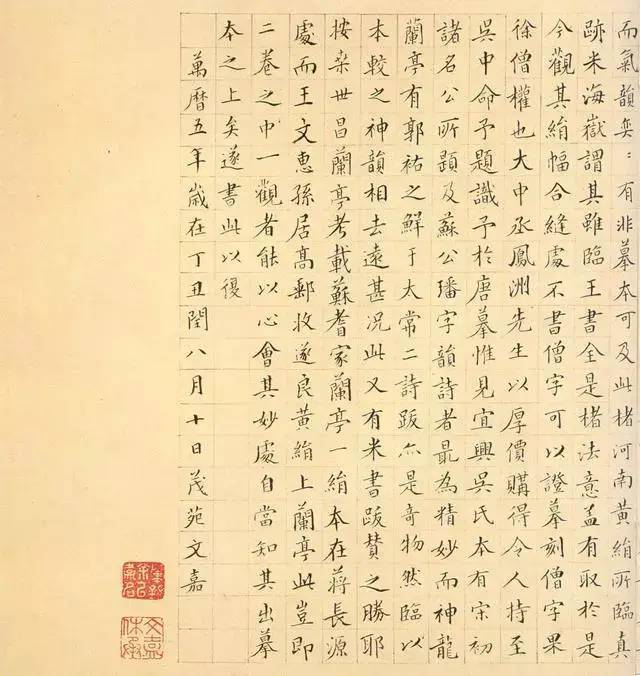 而氣韻奕〻有非摹本可及此楮河南黄絹所臨真
跡米海嶽謂其雖臨王書全是楮法意盖有取於是
今觀其絹幅合縫處不書僧字可以證摹刻僧字果
徐僧權也大中丞鳳洲先生以厚價購得令人持至
吳中命予題識予於唐摹惟見宜興吳氏本有宋初
諸名公所題及蘇公璠字韻詩者最為精妙而神龍
蘭亭有郭祐之鮮于太常二詩跋亦是竒物然臨以
本較之神韻相去遠甚況此又有米書跋贊之勝耶
按桒世昌蘭亭考載蘇耆家蘭亭一絹本在蔣長源
處而王文惠孫居高郵收遂良黄絹上蘭亭此豈即
二卷之中一觀者能以心會其妙處自當知其出摹
本之上矣遂書此以復
萬曆五年歲在丁丑閏八月十日茂苑文嘉
文嘉
休承